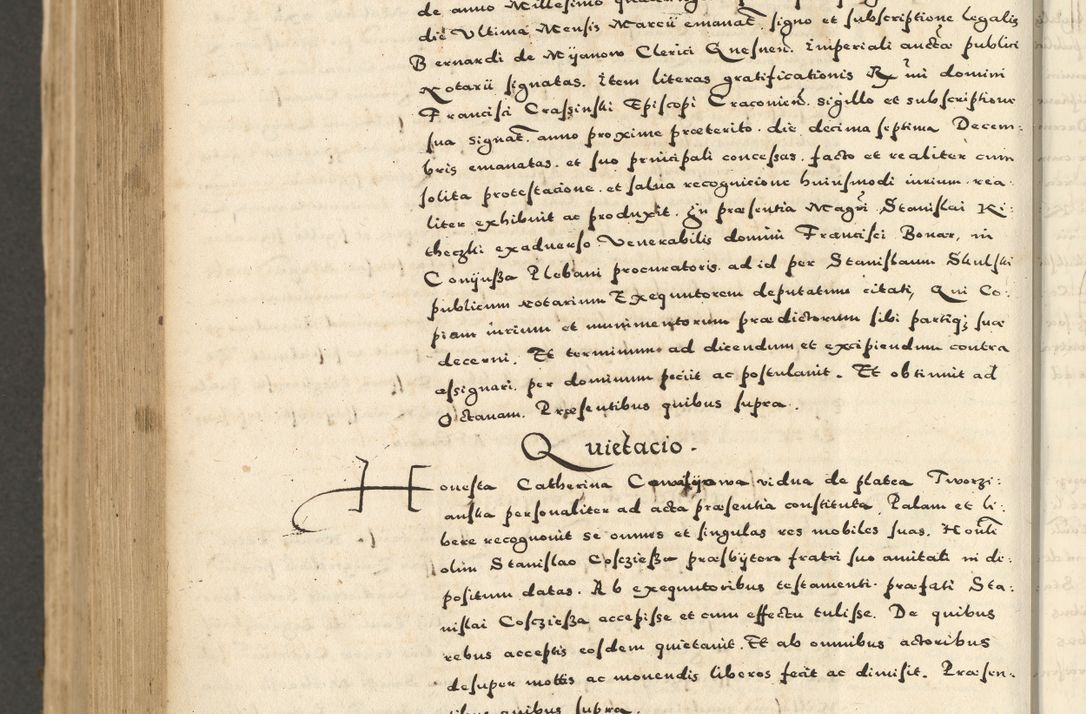 de anno Millesimo
die Vltima Mensis Marcii emanat. signo et subscriptione legalis
Bernardi de Mijanow Clerici Gnesnen. Imperiali aucta publici
Notarii signatas. Item literas gratificationis R mi domini
Francisci Crassinski Episcopi Craconien. sigillo et subscriptione
sua signat. anno proxime praeterito. die decima septima Decem:
bris emanatas. et suo principali concessas. facto et realiter cum
solita protestacione. et salua recognicione huiusmodi iurium rea:
liter exhibuit ac produxit. In praesentia Magri Stanislai Ki:
theczki exaduerso Venerabilis domini Francisci Bonar, in
Conijussa Plebani procuratoris. ad id per Stanislaum Skulski
publicum Notarium Exequutorem deputatum citati, Qui Co:
piam iurium et munimentorum praedictorum sibi partiq; suae
decerni. Et terminum ad dicendum et excipiendum contra
assignari. per dominum petiit ac postulauit. Et obtinuit ad
Octauam. Praesentibus quibus supra.
Quietacio.
Honesta Catherina vidua de platea Tworzi:
anska personaliter ad acta praesentia constituta. Palam et li:
bere recognouit se omnes et singulas res mobiles suas. Honti
olim Stanislao Coscziessa praesbytero fratri suo amitali in di:
positum datas. Ab exequutoribus testamenti praefati Sta:
nislai Coscziessa accepisse et cum effectu tulisse. De quibus
rebus acceptis eosdem quietauit. Et ab omnibus actoribus
desuper mottis ac mouendis liberos fecit ac dimisit. Praesen:
tibus quibus supra.